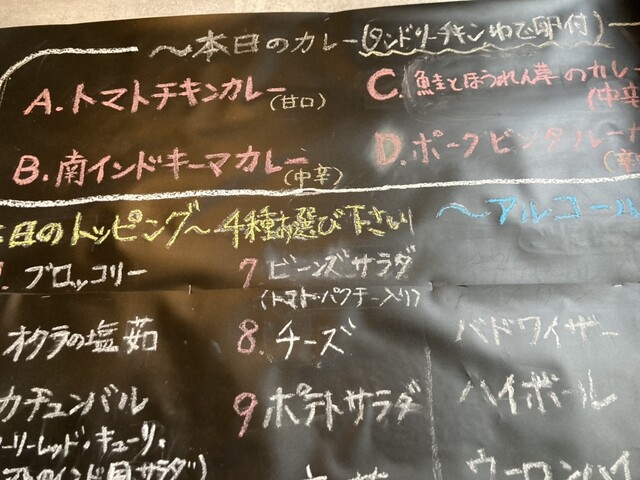 〜本日のカレー(タンドリーチキン ゆで卵付)
A.トマトチキンカレー(甘口)
B.南インドキーマカレー(中辛)
C.鮭とほうれん草のカレー
(中辛
D.ポークビンダルー
日のトッピング〜 4種お選び下さい
ブロッコリー
オクラの塩茹
カチュンバル
ーリーレッド・キューリ・
インド風サラダ)
7 ビーンズサラダ
(トマト・パクチー入り)
8.チーズ
9 ポテトサラダ
〜アルコール
バドワイザー
ハイボール
ウーロンハイ